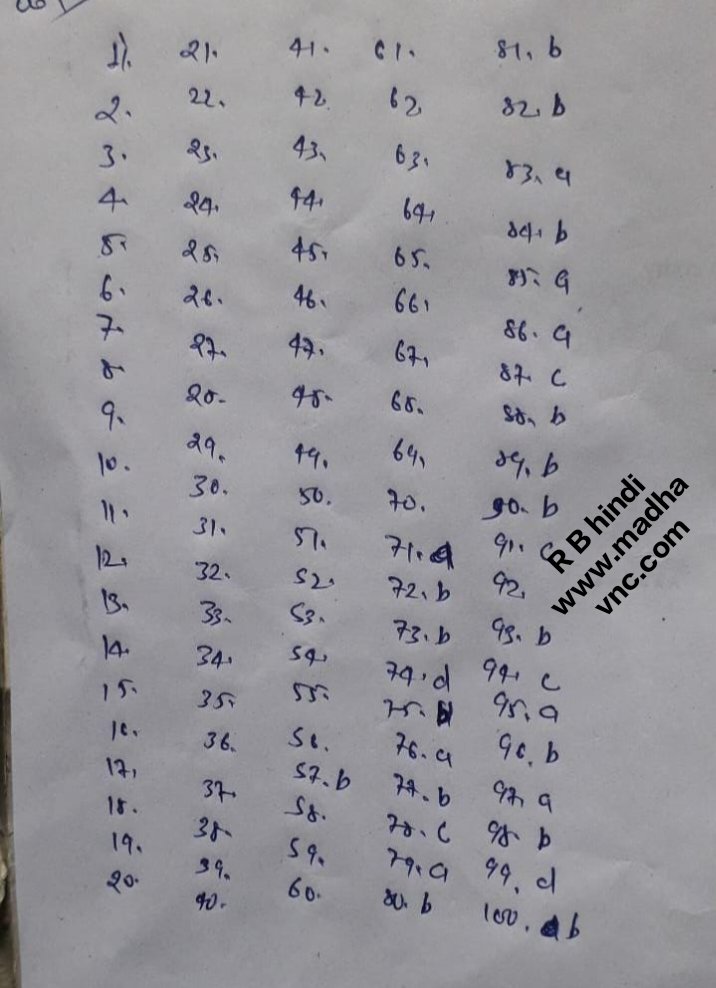 1). 21. 41. 61. 81. b
2. 22. 42. 62. 82. b
3. 23. 43. 63. 83. a
4. 24. 44. 64. 84. b
5. 25. 45. 65. 85. a
6. 26. 46. 66. 86. a
7. 27. 47. 67. 87. c
8. 28. 48. 68. 88. b
9. 29. 49. 69. 89. b
10. 30. 50. 70. 90. b
11. 31. 51. 71. a 91.
12. 32. 52. 72. b 92.
13. 33. 53. 73. b 93. b
14. 34. 54. 74. d 94. c
15. 35. 55. 75. 95. a
16. 36. 56. 76. a 96. b
17. 37. 57. b 77. b 97. a
18. 38. 58. 78. c 98. b
19. 39. 59. 79. a 99. d
20. 40. 60. 80. b 100. b
R B hindi
www.madha
vnc.com